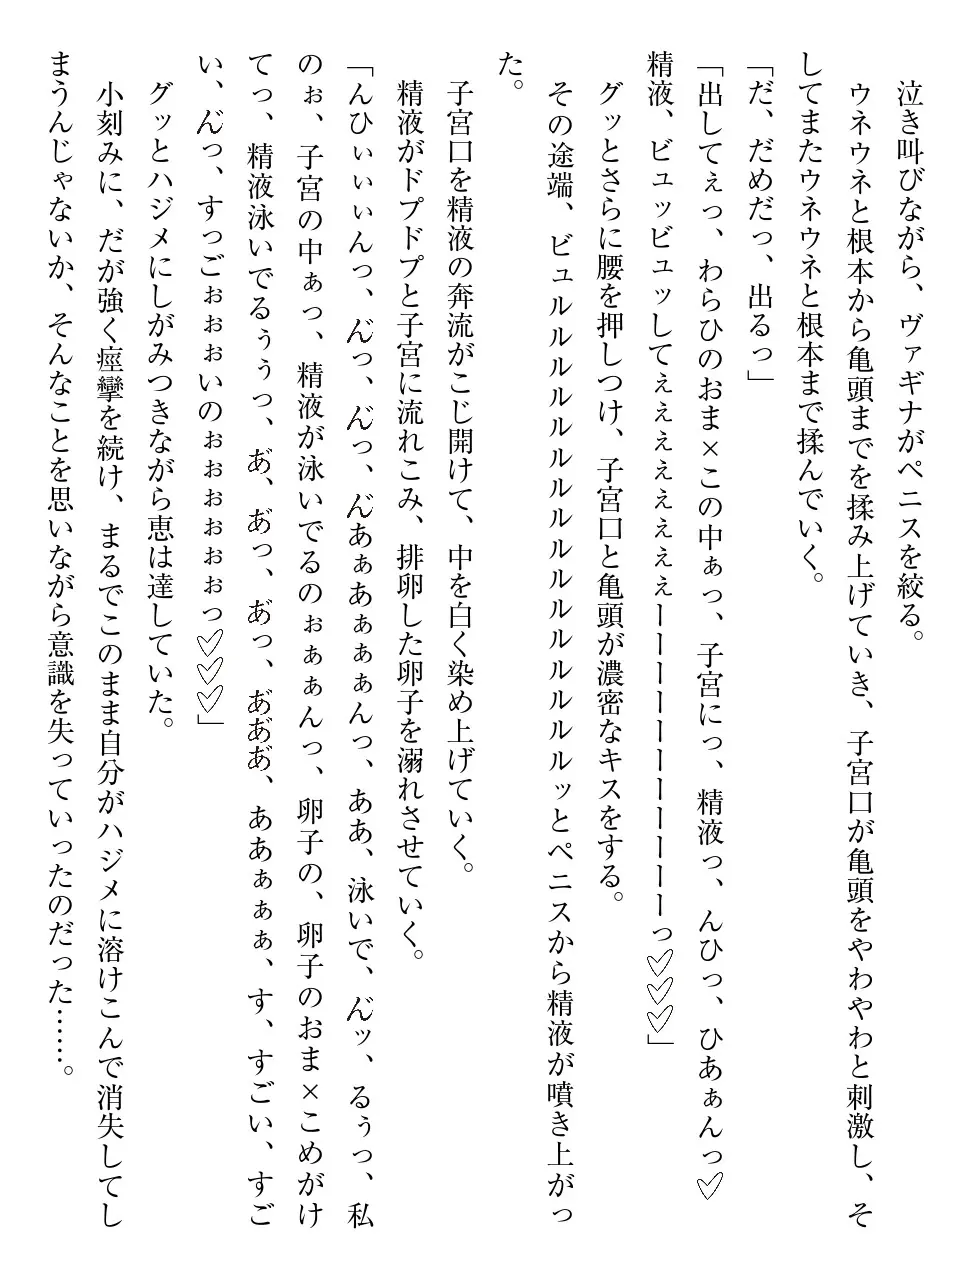 泣き叫びながら、ヴァギナがペニスを絞る。
ウネウネと根本から亀頭までを揉み上げていき、子宮口が亀頭をやわやわと刺激し、そ
してまたウネウネと根本まで揉んでいく。
「だ、だめだっ、出るっ」
「出してぇっ、わらひのおま×この中ぁっ、子宮にっ、精液っ、んひっ、ひあぁんっ♡
精液、ビュッビュッしてぇぇぇぇぇぇぇーーーーーーーーーーーっ♡♡♡」
グッとさらに腰を押しつけ、子宮口と亀頭が濃密なキスをする。
その途端、ビュルルルルルルルルルルルルルルルルッとペニスから精液が噴き上がっ
た。
子宮口を精液の奔流がこじ開けて、中を白く染め上げていく。
精液がドプドプと子宮に流れこみ、排卵した卵子を溺れさせていく。
「んひぃぃぃんっ、ん゙っ、ん゙っ、ん゙あぁあぁぁぁんっ、ああ、泳いで、ん゙ッ、るぅっ、私
のぉ、子宮の中ぁっ、精液が泳いでるのぉぁぁんっ、卵子の、卵子のおま×こめがけ
てっ、精液泳いでるぅぅっ、あ゙、あ゙っ、あ゙っ、あ゙あ゙あ゙、ああぁぁぁ、す、すごい、すご
い、ん゙っ、すっごぉぉぉいのぉぉぉぉぉぉっ♡♡♡」
グッとハジメにしがみつきながら恵は達していた。
小刻みに、だが強く痙攣を続け、まるでこのまま自分がハジメに溶けこんで消失してし
まうんじゃないか、そんなことを思いながら意識を失っていったのだった……。